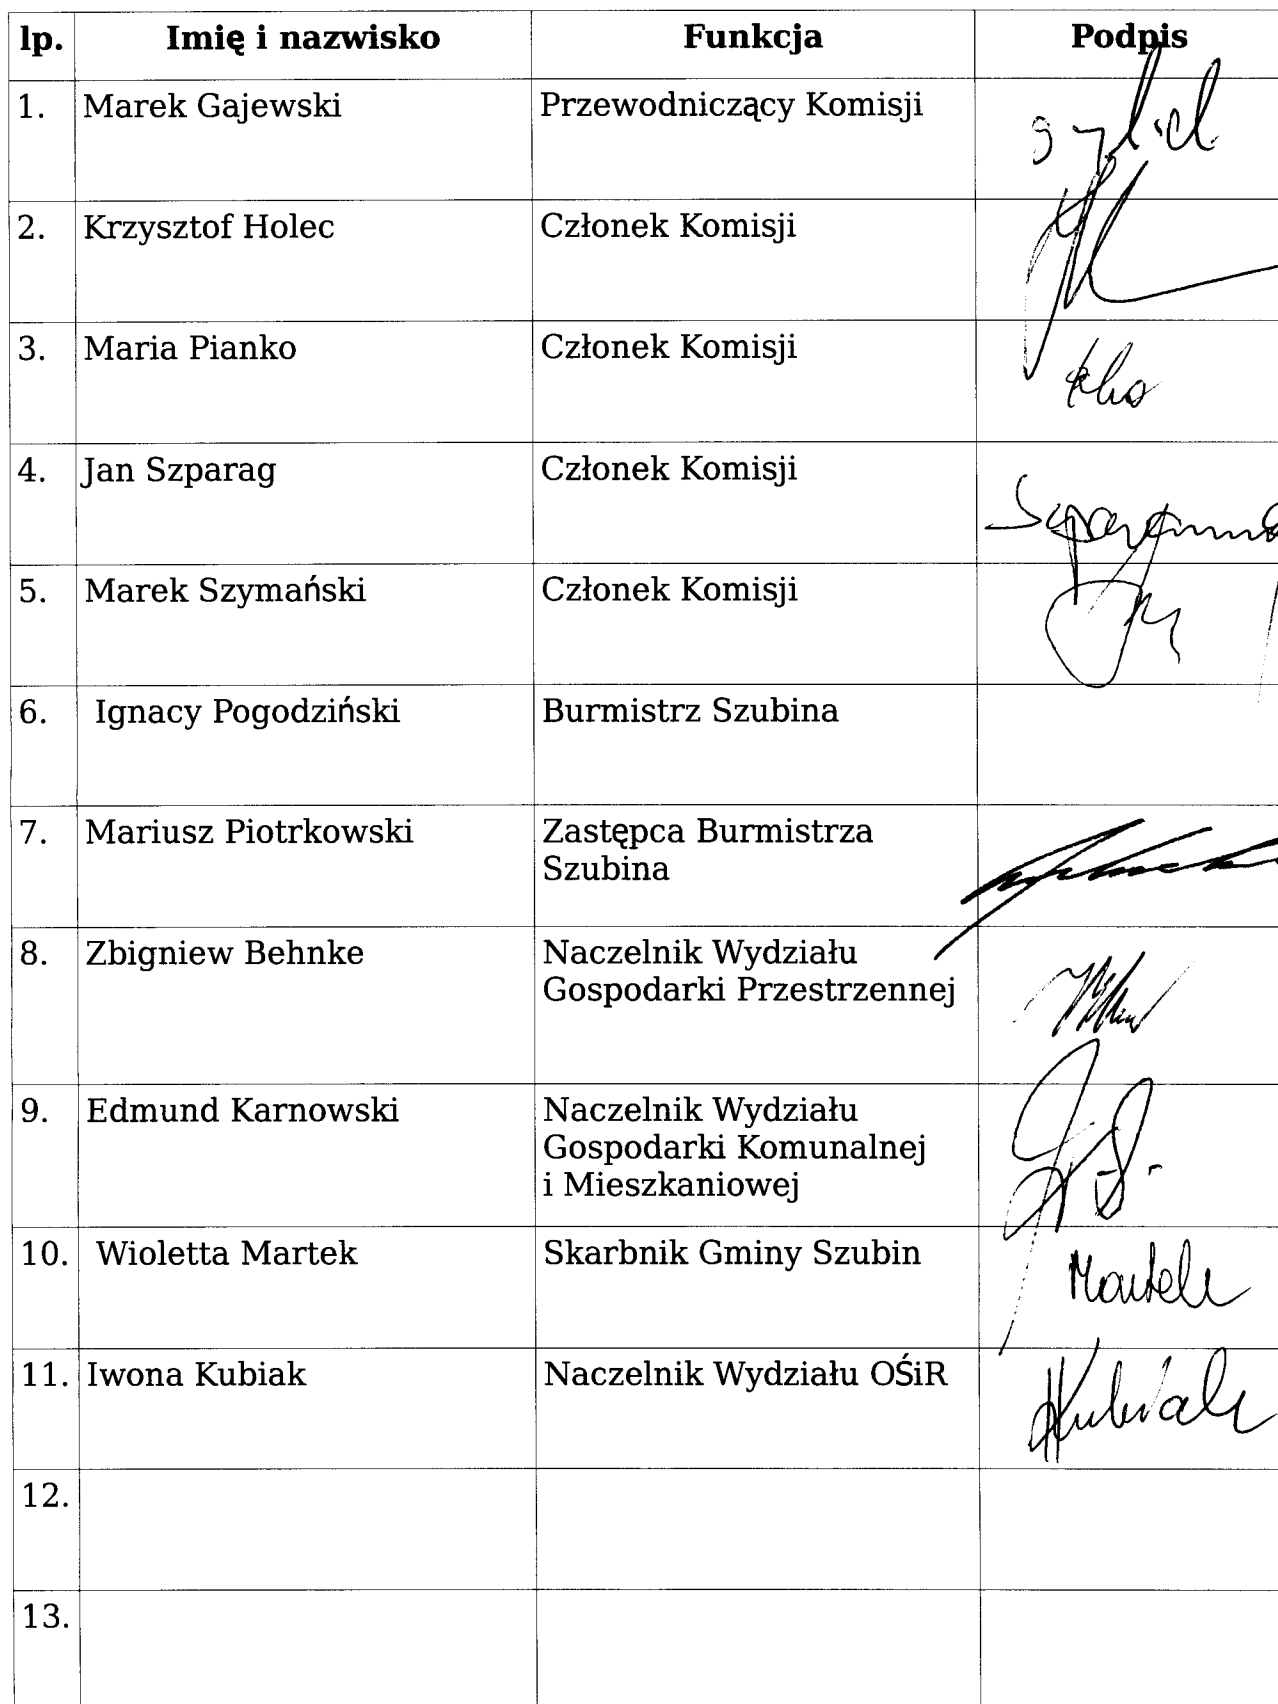 lp. Imię i nazwisko Funkcja Podpis
1. Marek Gajewski Przewodniczący Komisji
2. Krzysztof Holec Członek Komisji
3. Maria Pianko Członek Komisji
4. Jan Szparag Członek Komisji
5. Marek Szymański Członek Komisji
6. Ignacy Pogodziński Burmistrz Szubina
7. Mariusz Piotrkowski Zastępca Burmistrza
Szubina
8. Zbigniew Behnke Naczelnik Wydziału
Gospodarki Przestrzennej
9. Edmund Karnowski Naczelnik Wydziału
Gospodarki Komunalnej
i Mieszkaniowej
10. Wioletta Martek Skarbnik Gminy Szubin Martek
11. Iwona Kubiak Naczelnik Wydziału OŚiR Kubiak
12.
13.